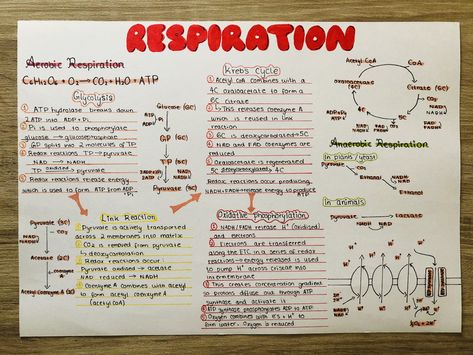 RESPIRATION
Aerobic Respiration
C₆H₁₂O₆ + O₂ → CO₂ + H₂O + ATP
Glycolysis
① ATP hydrolase breaks down
2ATP into ADP + Pi
② Pi is used to phosphorylate
glucose → glucosephosphate
③ GP splits into 2 molecules of TP
④ Redox reactions TP → pyruvate
NAD → NADH
TP oxidised → pyruvate
⑤ Redox reactions release energy
which is used to form ATP from ADP + Pi
Glucose (6C)
ATP
ADP + Pi
GP (6C)
TP (3C)
Pyruvate (3C)
Link Reaction
① Pyruvate is actively transported
across 2 membranes into matrix
② CO₂ is removed from pyruvate
↳ decarboxylation
③ Redox reactions occur:
Pyruvate oxidised → acetate
NAD reduced → NADH
④ Coenzyme A combines with acetyl
to form acetyl coenzyme A
(acetyl CoA)
Pyruvate (3C)
NAD
NADH
CO₂
Acetate (2C)
CoA
Acetyl Coenzyme A (2C)
Krebs Cycle
① Acetyl CoA combines with a
4C oxaloacetate to form a
6C citrate
② ↳ This releases coenzyme A
which is reused in link
reaction
③ 6C is decarboxylated → 5C
④ NAD and FAD coenzymes are
reduced
⑤ Oxaloacetate is regenerated
5C decarboxylated → 4C
Redox reactions occur producing
NADH + FADH → release energy to produce
ATP
Oxidative Phosphorylation
① NADH/FADH release H⁺ (oxidised)
and electrons
② Electrons are transferred
along the ETC in a series of redox
reactions → energy released is used
to pump H⁺ across cristae into
intermembrane
③ This creates concentration gradient
so protons diffuse out through ATP
synthase and activate it
④ ATP synthase phosphorylates ADP to ATP
⑤ Oxygen combines with e's + H⁺ to
form water. Oxygen is reduced
Acetyl CoA
CoA
oxaloacetate
(4C)
Citrate (6C)
CO₂
NAD
NADH
5C
4C
ATP
ADP + Pi
Anaerobic Respiration
In plants / yeast
Pyruvate
CO₂
NADH
NAD
In animals
Pyruvate
Lactate
NADH
NAD
H⁺